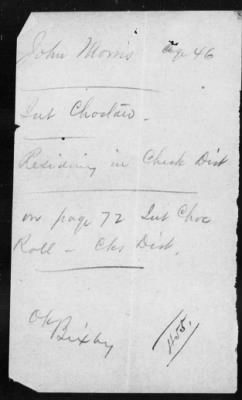 John Morris age 46
Int Choctaw.
Residing in Chick Dist
on page 72 Int Choc
Roll - Chs Dist.
OK
Bixby